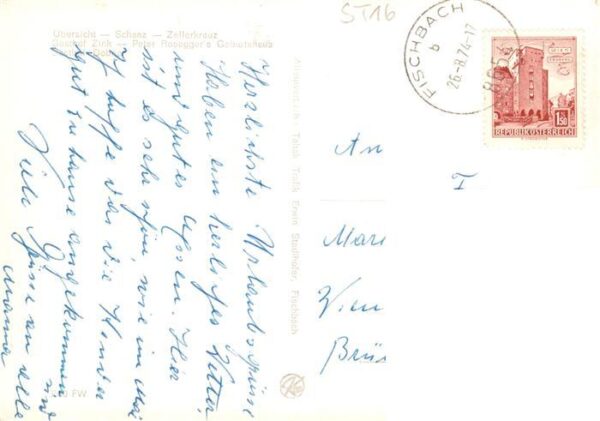 ST16
Übersicht — Schanz — Zellerkreuz
Gasthof Zink — Peter Rosegger's Geburtshaus
FISCHBACH
b
26.-8.74-17
8654
1.50
REPUBLIK ÖSTERREICH
Herzlichste Urlaubsgrüße
Haben ein herliches Wetter
und gutes Essen. Hier
ist es sehr schön, wie im Mai
Ich hoffe das die Kinder
gut zu hause angekommen
sind
Viele Grüsse an alle
Mama
Alleinverlag: Tabak Trafik Erwin Stadlhofer, Fischbach
An
Mar
Wien
Brü
FW